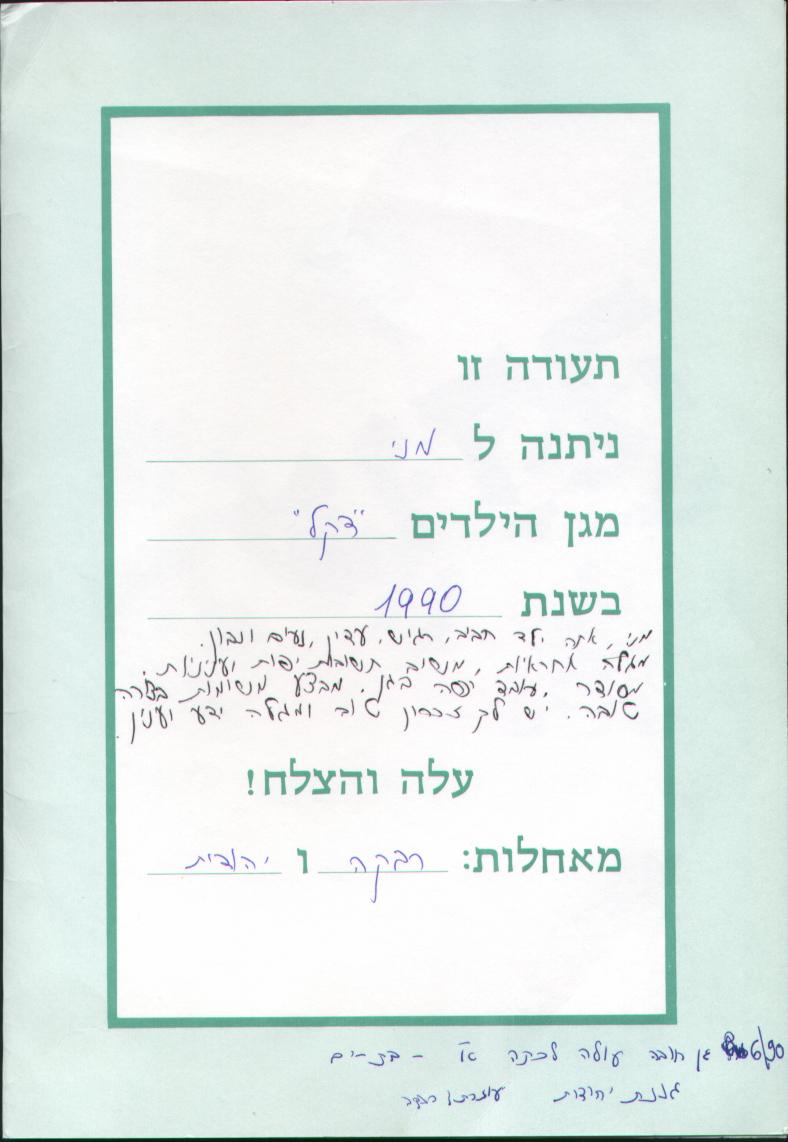 תעודה זו
ניתנה ל מני
מגן הילדים "דקל"
בשנת 1990
מני, אתה ילד חביב, רגיש, עדין, נעים ונבון.
מגלה אחראיות, מנסיב תשובות יפות ועניניות.
מסודר, עובד יפה בגן. מבצע משימות בצורה
טובה. יש לך זכרון טוב ומגלה ידע וענין.
עלה והצלח!
מאחלות: רבקה ו יהודית
6/90 גן חובה עולה לכתה א' - בת-ים
גננת יהודית עוזרתן רבקה